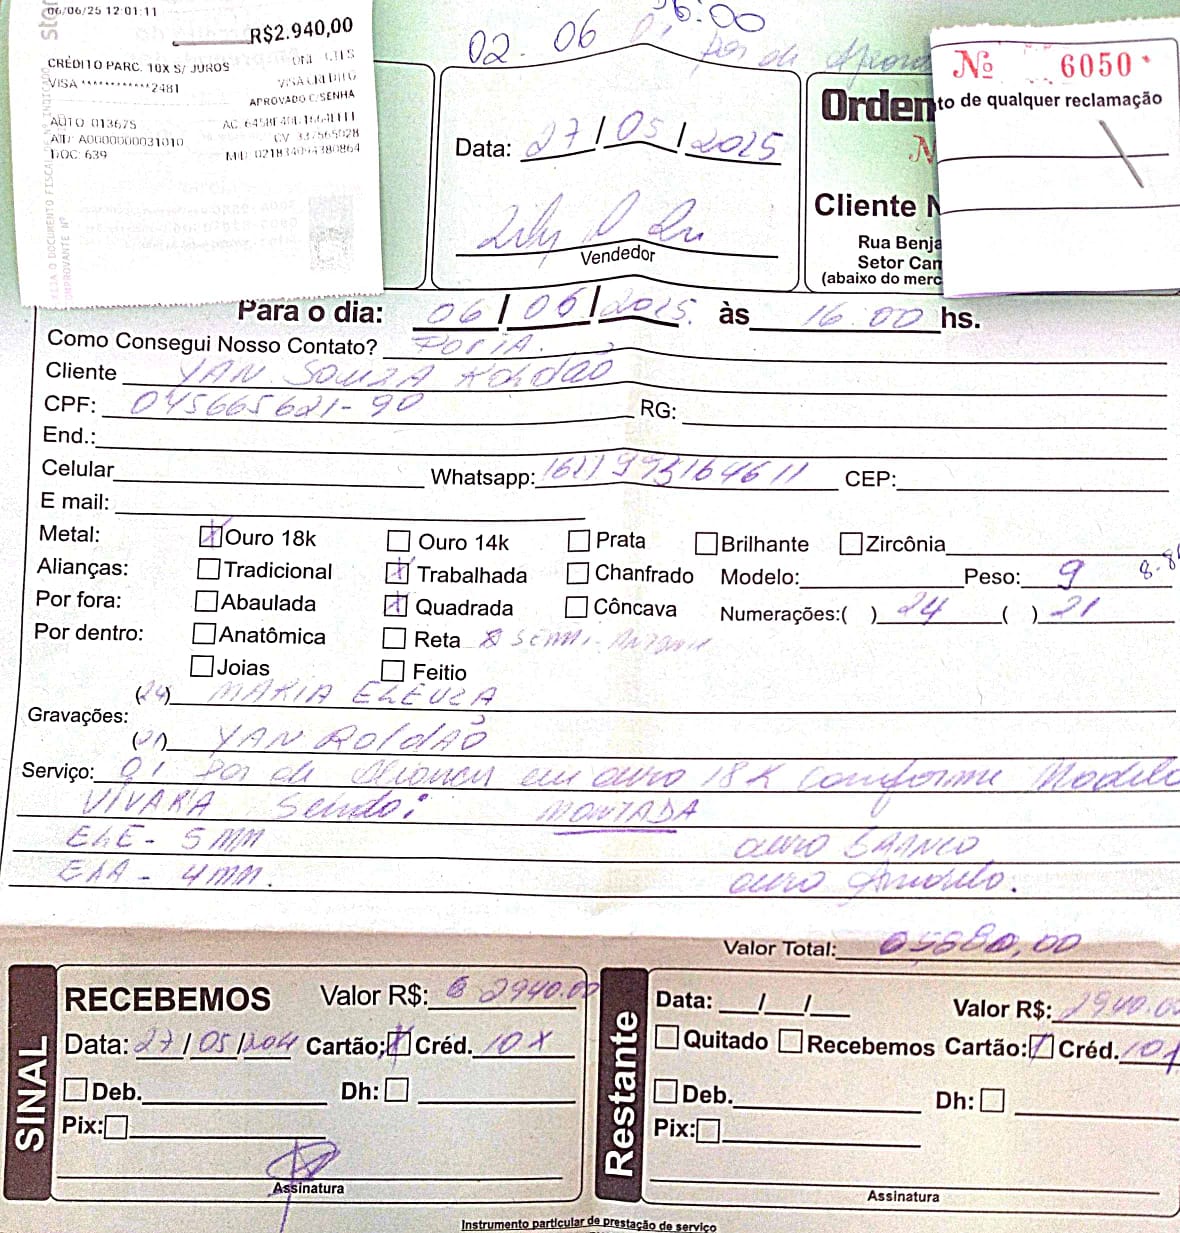 06/06/25 12:01:11
R$2.940,00
CRÉDITO PARC. 10X S/ JUROS
VISA ***********2481
VISA CREDITO
APROVADO C/SENHA
AUTO 013675
AID A0000000031010
DOC: 639
02.06
16:00
par de
Nº 6050
to de qualquer reclamação
Data: 27/05/2025
Vendedor
Orden
Cliente N
Rua Benja
Setor Cam
(abaixo do merc
Para o dia: 06/06/2025. às 16:00 hs.
Como Consegui Nosso Contato?
Cliente YAN SOUZA ROLDÃO
CPF: 045665621-90 RG:
End.:
Celular Whatsapp: CEP:
E mail:
Metal: Ouro 18k Ouro 14k Prata Brilhante Zircônia
Alianças: Tradicional Trabalhada Chanfrado Modelo: Peso: 9
Por fora: Abaulada Quadrada Côncava Numerações:( ) 24 ( ) 21
Por dentro: Anatômica Reta SEMI-
Joias Feitio
(24) MARIA ELEUZA
Gravações:
(21) YAN ROLDÃO
Serviço: 01 Par de Alianças em ouro 18K Conforme Modelo
VIVARA Sendo: MONTADA
ELE - 5 MM ouro BRANCO
ELA - 4 MM. ouro Amarelo.
Valor Total: 5880,00
SINAL
RECEBEMOS Valor R$: 2940.00
Data: 27/05/ Cartão; Créd. 10X
Deb. Dh:
Pix:
Assinatura
Restante
Data: / / Valor R$: 2940.00
Quitado Recebemos Cartão: Créd. 10
Deb. Dh:
Pix:
Assinatura
Instrumento particular de prestação de serviço